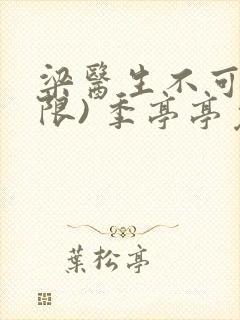 梁醫生不可
限) 季亭亭
葉松亭